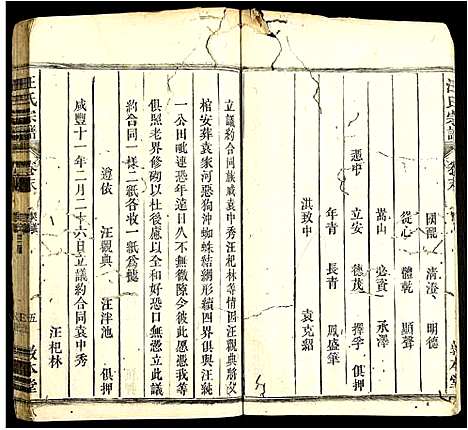 汪氏宗譜
卷末
國配　清澄　明德
從心　體乾　顯聲
嵩山　必貴　承澤
憑中　立安　德茂　擇孚
年青　長青　鳳盛筆
洪致中　袁克紹
敦本堂
立議約合同族戚袁中秀汪杞林等情因汪觀典將父
棺安葬袁家河惡狗沖蜘蛛結網形續四界俱與汪毓
一公田毗連恐年遠日久不無微障今戚此愿憑我等
俱照老界修砌以杜後慮以全和好恐口無憑立此議
約合同一樣二紙各收一紙為據
遵依　汪觀典　汪泮池　俱押
咸豐十一年二月二十六日立議約合同袁中秀
汪杞林
汪氏宗譜
卷末
五
敦本堂